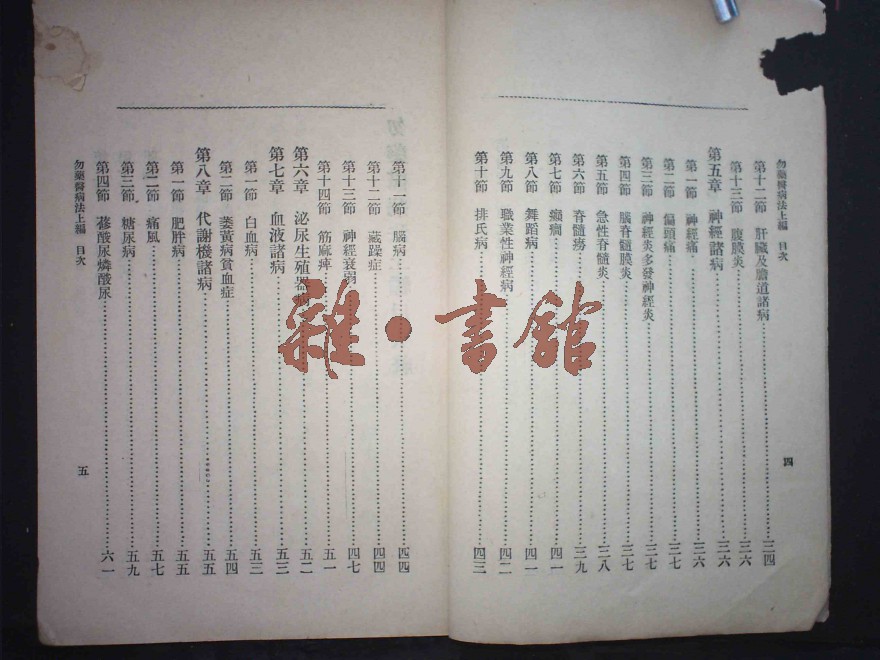 勿藥醫病法上編 目次
四
第十二節 肝臟及膽道諸病 三四
第十三節 腹膜炎 三六
第五章 神經諸病 三六
第一節 神經痛 三六
第二節 偏頭痛 三七
第三節 神經炎多發神經炎 三七
第四節 腦脊髓膜炎 三七
第五節 急性脊髓炎 三八
第六節 脊髓癆 三九
第七節 癲癇 四一
第八節 舞蹈病 四一
第九節 職業性神經病 四二
第十節 排氏病 四三
第十一節 腦病 四四
第十二節 藏躁症 四四
第十三節 神經衰弱 四七
第十四節 筋麻痺 五一
第六章 泌尿生殖器病 五二
第七章 血液諸病 五三
第一節 白血病 五三
第二節 萎黃病貧血症 五四
第八章 代謝機諸病 五五
第一節 肥胖病 五五
第二節 痛風 五七
第三節 糖尿病 五九
第四節 蓚酸尿燐酸尿 六一
勿藥醫病法上編 目次
五
雜·書館